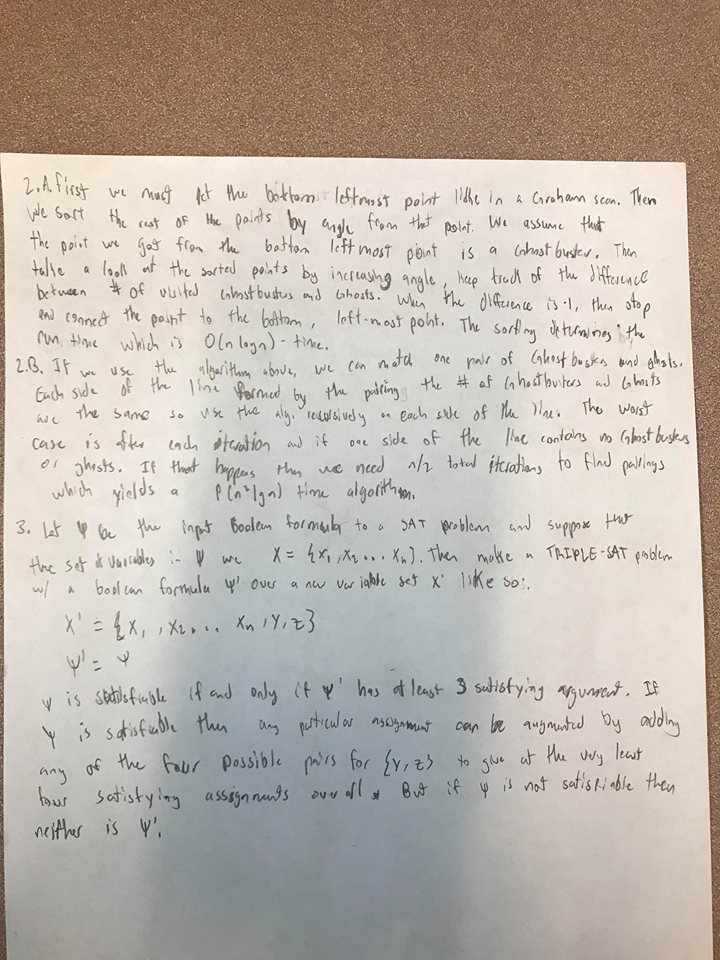 2.A. first we must get the bottom leftmost point like in a Graham scan. Then
we sort the rest of the points by angle from that point. We assume that
the point we got from the bottom left most point is a Ghostbuster. Then
take a look at the sorted points by increasing angle, keep track of the difference
between # of visited Ghostbusters and Ghosts. When the difference is -1, then stop
and connect the point to the bottom, left-most point. The sorting determines the
run time which is O(n log n) - time.
2.B. If we use the algorithm above, we can match one pair of Ghostbusters and ghosts.
Each side of the line formed by the pairing the # of Ghostbusters and Ghosts
are the same so use the alg. recursively on each side of the line. The worst
case is after each iteration and if one side of the line contains no Ghostbusters
or ghosts. If that happens then we need n/2 total iterations to find pairings
which yields a P(n² lg n) time algorithm.
3. Let Ψ be the input Boolean formula to a SAT problem and suppose that
the set of variables in Ψ are X = {x₁, x₂ ... xₙ}. Then make a TRIPLE-SAT problem
w/ a boolean formula Ψ' over a new variable set X' like so:.
X' = {x₁, , x₂ ... xₙ, y, z}
Ψ' = Ψ
Ψ is satisfiable if and only if Ψ' has at least 3 satisfying argument. If
Ψ is satisfiable then any particular assignment can be augmented by adding
any of the four possible pairs for {y, z} to give at the very least
four satisfying assignments overall. But if Ψ is not satisfiable then
neither is Ψ'.